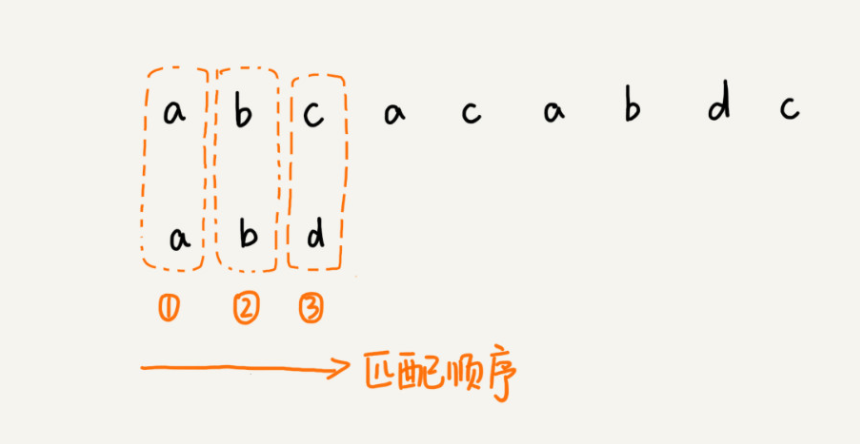 a b c a c a b d c
a b d
① ② ③
匹配顺序